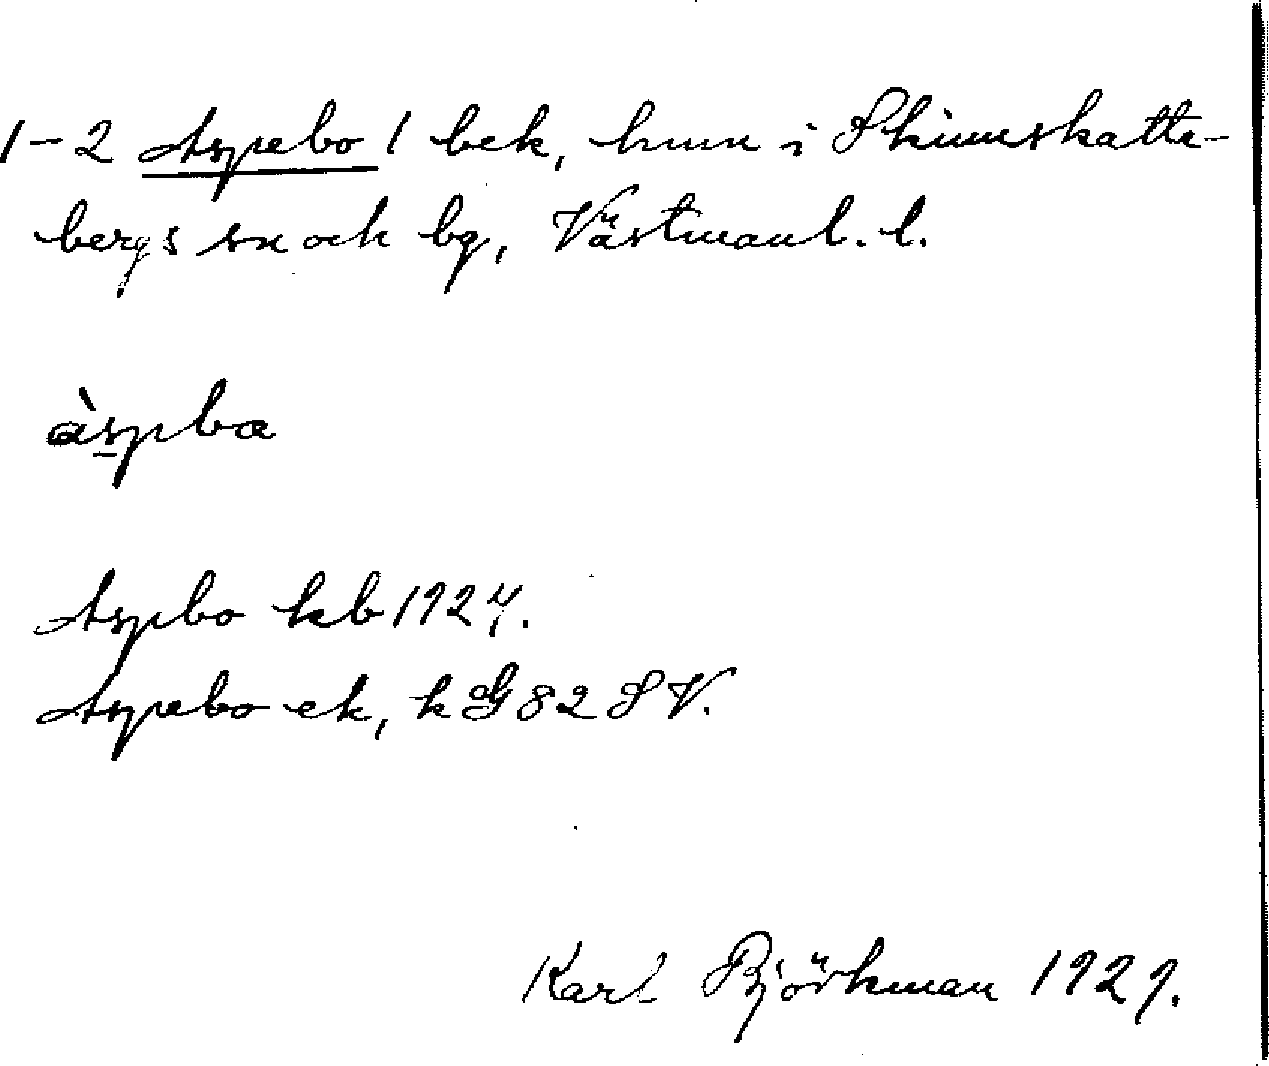 1-2 Aspebo 1 bek, hmn i Skinnskatte-
bergs sn och bg, Västmanl. l.
àspba
Aspbo kb 1927.
Aspebo ek, k G 82 SV.
Karl Björkman 1929.